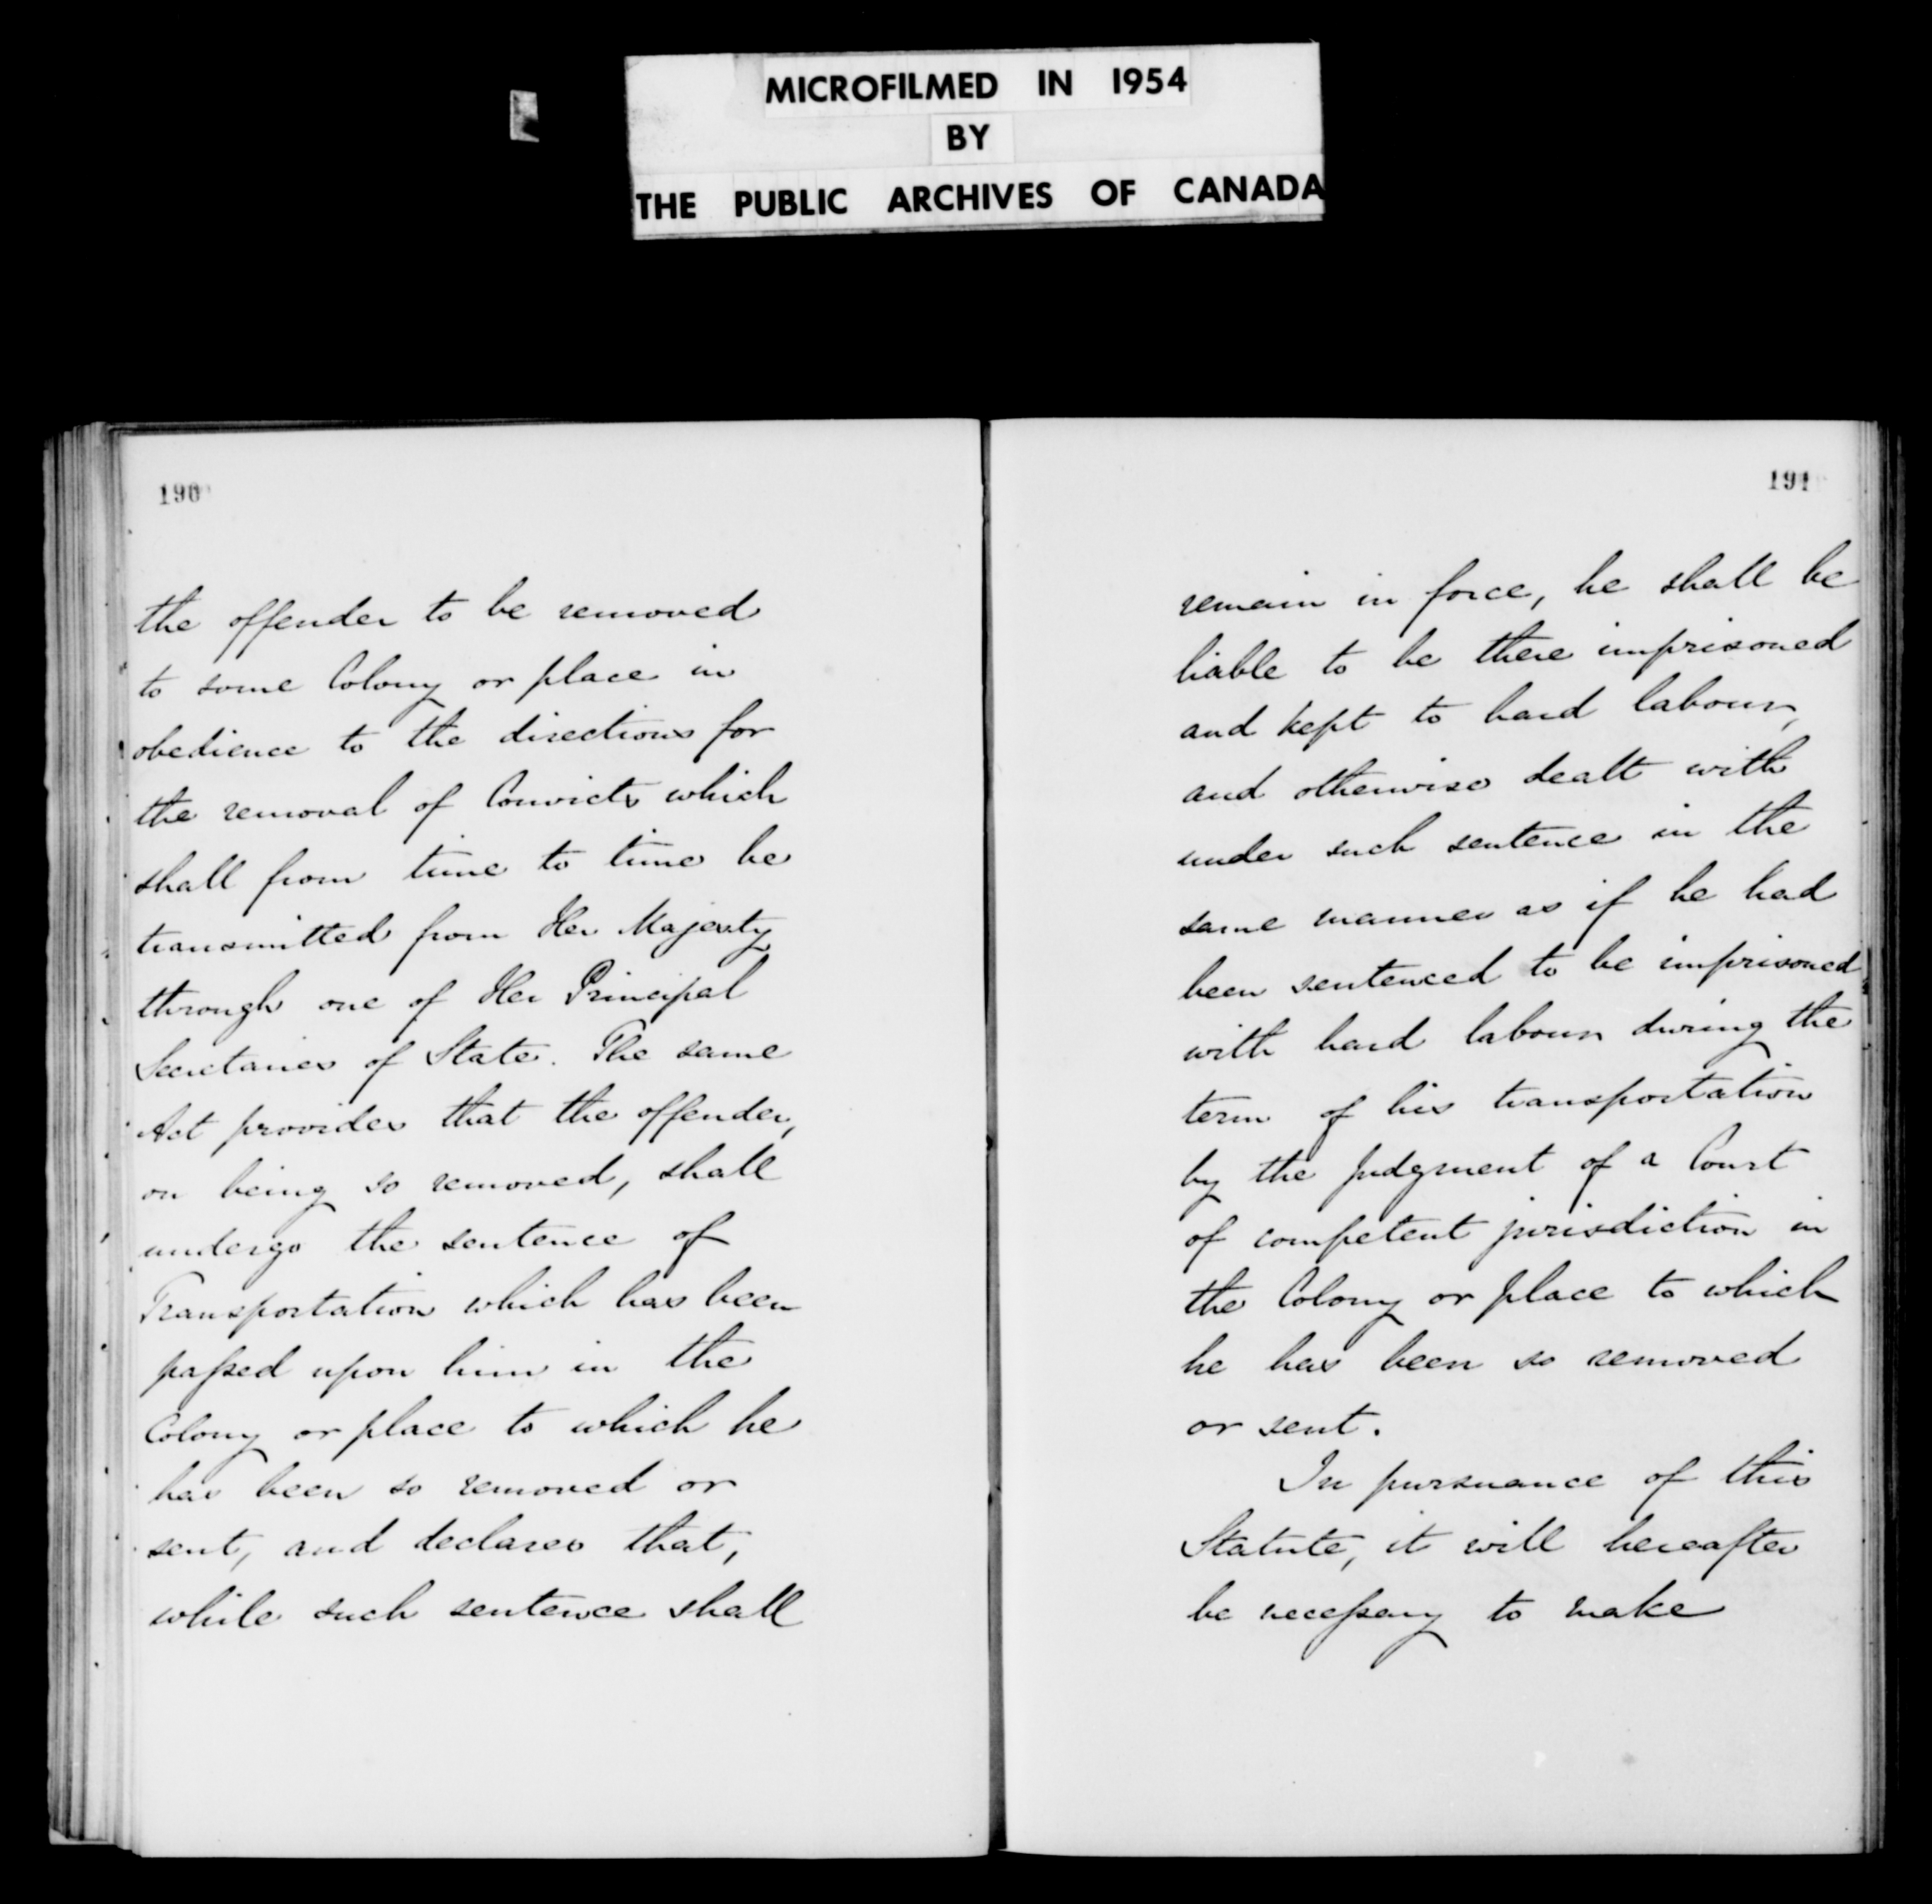 MICROFILMED IN 1954
BY
THE PUBLIC ARCHIVES OF CANADA
190
the offender to be removed
to some Colony or place in
obedience to the directions for
the removal of Convicts which
shall from time to time be
transmitted from Her Majesty
through one of Her Principal
Secretaries of State. The same
Act provides that the offender,
on being so removed, shall
undergo the sentence of
Transportation which has been
passed upon him in the
Colony or place to which he
has been so removed or
sent, and declares that,
while such sentence shall
191
remain in force, he shall be
liable to be there imprisoned
and kept to hard labour,
and otherwise dealt with
under such sentence in the
same manner as if he had
been sentenced to be imprisoned
with hard labour during the
term of his transportation
by the judgment of a Court
of competent jurisdiction in
the Colony or place to which
he has been so removed
or sent.
In pursuance of this
Statute, it will hereafter
be necessary to make